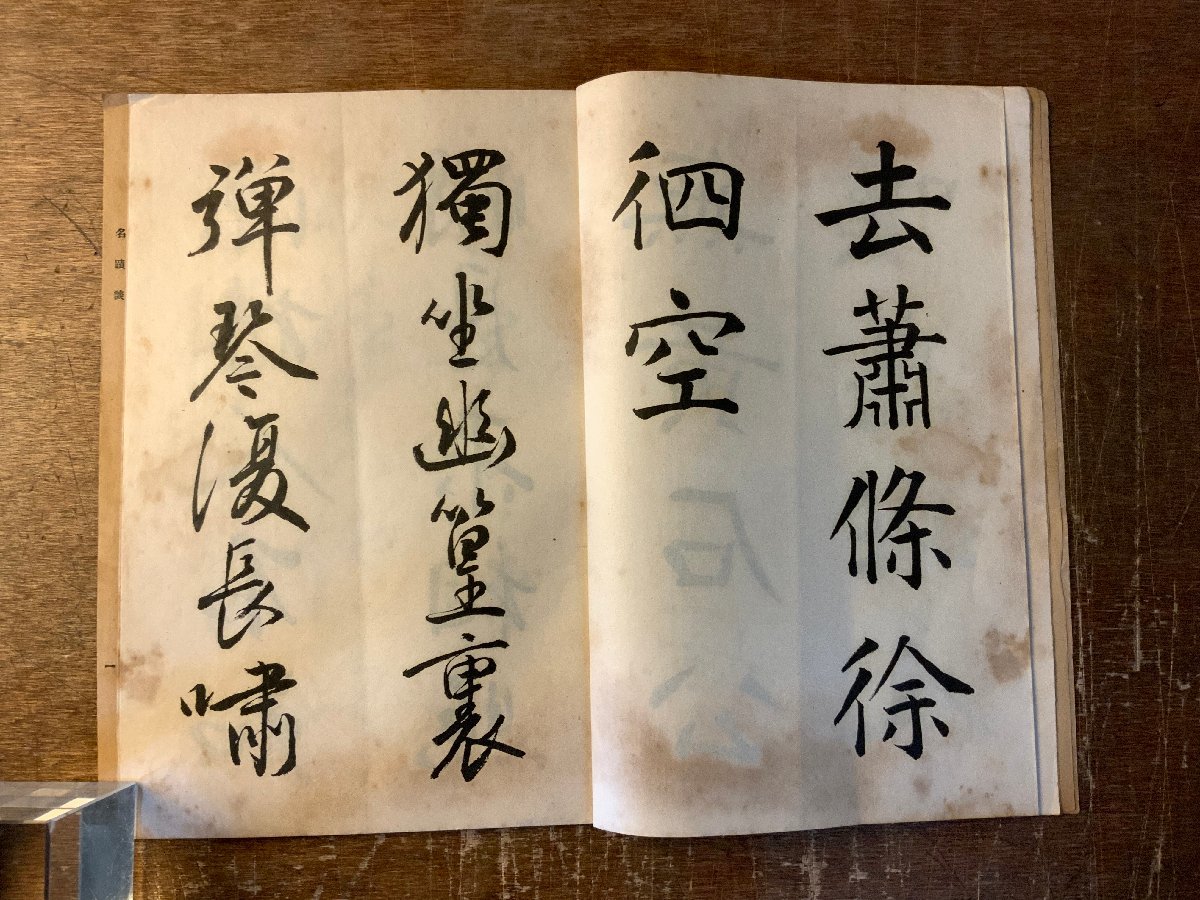 去蕭條徐
徊空
獨坐幽篁裏
弾琴復長嘯
名蹟
一